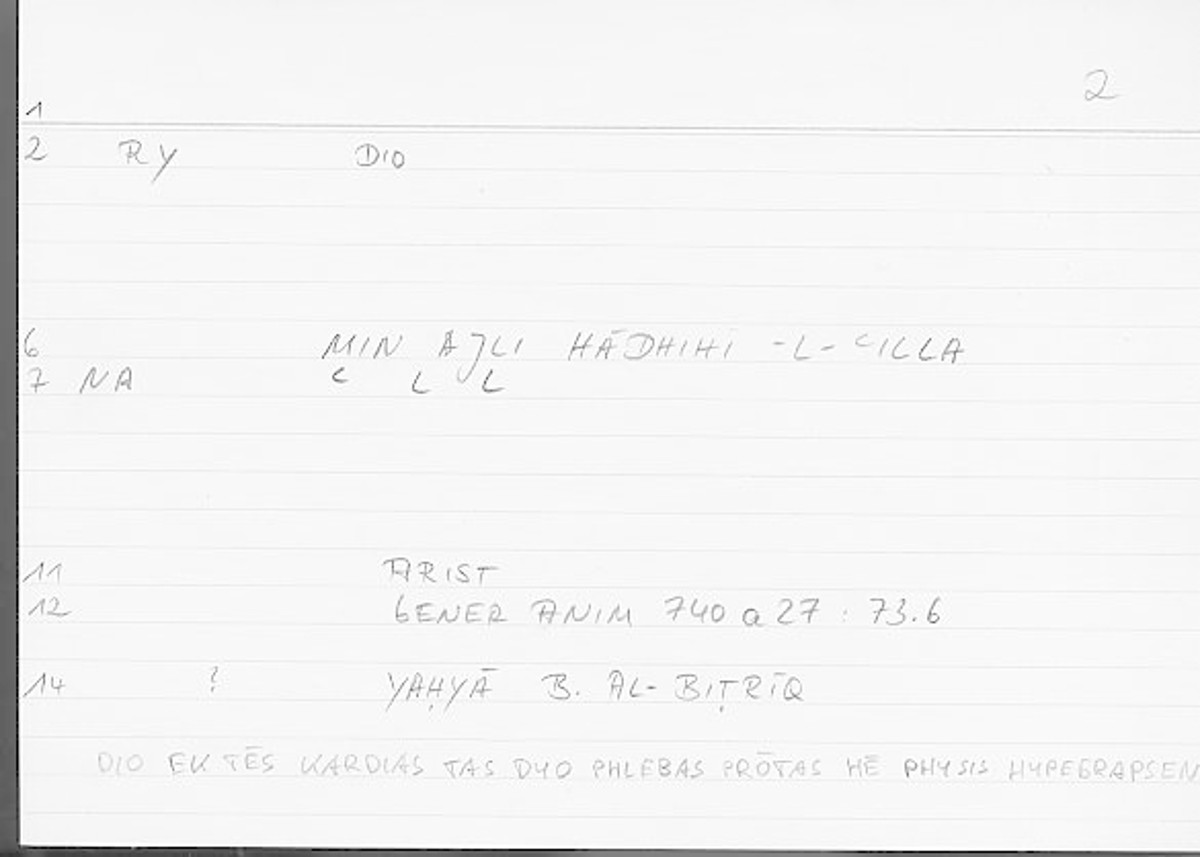 2
1
2 RY DIO
6 MIN AJLI HĀDHIHI -L- ʿILLA
7 NA ʿ L L
11 ARIST
12 GENER ANIM 740 a 27 : 73.6
14 ? YAḤYĀ B. AL-BIṬRĪQ
DIO EK TĒS KARDIAS TAS DYO PHLEBAS PRŌTAS HĒ PHYSIS HYPEGRAPSEN